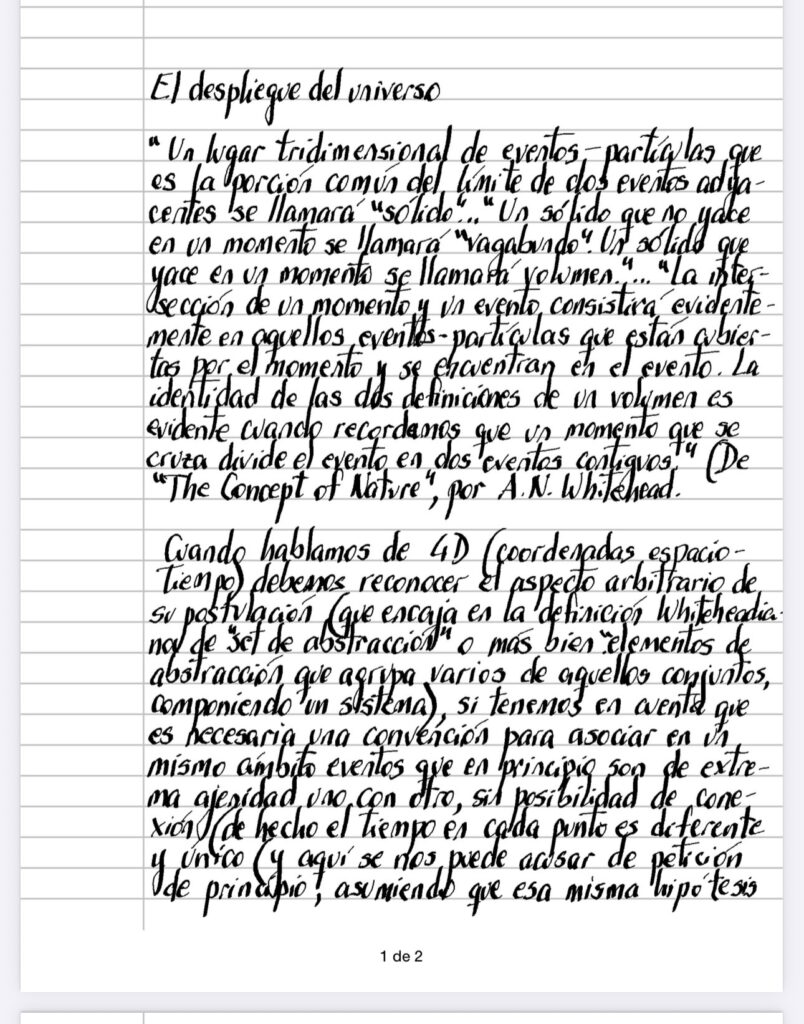 El despliegue del universo
"Un lugar tridimensional de eventos-partículas que
es la porción común del límite de dos eventos adya-
centes se llamará "sólido"..."Un sólido que no yace
en un momento se llamará "vagabundo". Un sólido que
yace en un momento se llamará volumen."..."La inter-
sección de un momento y un evento consistirá evidente-
mente en aquellos eventos-partículas que están cubier-
tas por el momento y se encuentran en el evento. La
identidad de las dos definiciones de un volumen es
evidente cuando recordamos que un momento que se
cruza divide el evento en dos eventos contiguos." (De
"The Concept of Nature", por A.N. Whitehead.
Cuando hablamos de 4D (coordenadas espacio-
Tiempo) debemos reconocer el aspecto arbitrario de
su postulación (que encaja en la definición Whiteheadia-
na de "set de abstracción" o más bien "elementos de
abstracción que agrupa varios de aquellos conjuntos,
componiendo un sistema), si tenemos en cuenta que
es necesaria una convención para asociar en un
mismo ámbito eventos que en principio son de extre-
ma ajenidad uno con otro, sin posibilidad de cone-
xión (de hecho el tiempo en cada punto es diferente
y único (y aquí se nos puede acusar de petición
de principio, asumiendo que esa misma hipótesis
1 de 2